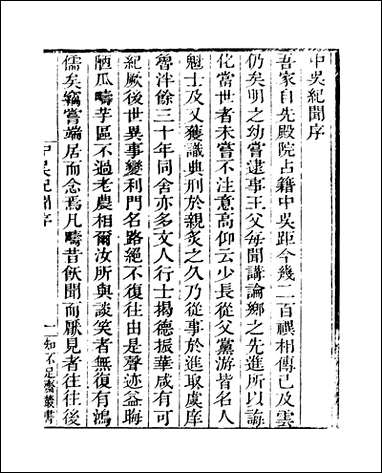 中吳紀聞序
吾家自先殿院占籍中吳距今幾二百禩相傳已及雲
仍矣明之幼嘗逮事王父每聞講論鄉之先進所以誨
化當世者未嘗不注意高仰云少長從父黨游皆名人
魁士及又獲識典刑於親炙之久乃從事於進取虞庠
魯泮餘三十年同舍亦多文人行士揭德振華咸有可
紀厥後世異事變利門名路絕不復往由是聲迹益晦
陋瓜疇芋區不過老農相爾汝所與談笑者無復有鴻
儒矣竊嘗端居而念焉凡疇昔飫聞而厭見者往往後
中吳紀聞序
一
知不足齋叢書